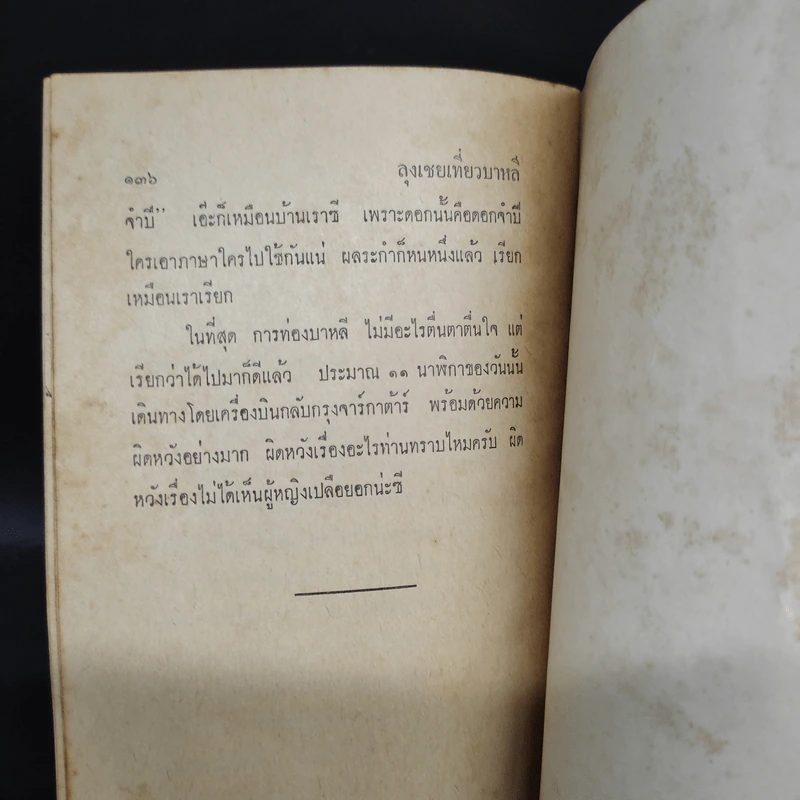 ๑๓๖ ลุงเชยเที่ยวบาหลี
จำปี” เอ๊ะก็เหมือนบ้านเราซี เพราะดอกนั้นคือดอกจำปี
ใครเอาภาษาใครไปใช้กันแน่ ผลระกำก็หนหนึ่งแล้ว เรียก
เหมือนเราเรียก
ในที่สุด การท่องบาหลี ไม่มีอะไรตื่นตาตื่นใจ แต่
เรียกว่าได้ไปมาก็ดีแล้ว ประมาณ ๑๑ นาฬิกาของวันนั้น
เดินทางโดยเครื่องบินกลับกรุงจาร์กาต้าร์ พร้อมด้วยความ
ผิดหวังอย่างมาก ผิดหวังเรื่องอะไรท่านทราบไหมครับ ผิด
หวังเรื่องไม่ได้เห็นผู้หญิงเปลือยอกน่ะซี